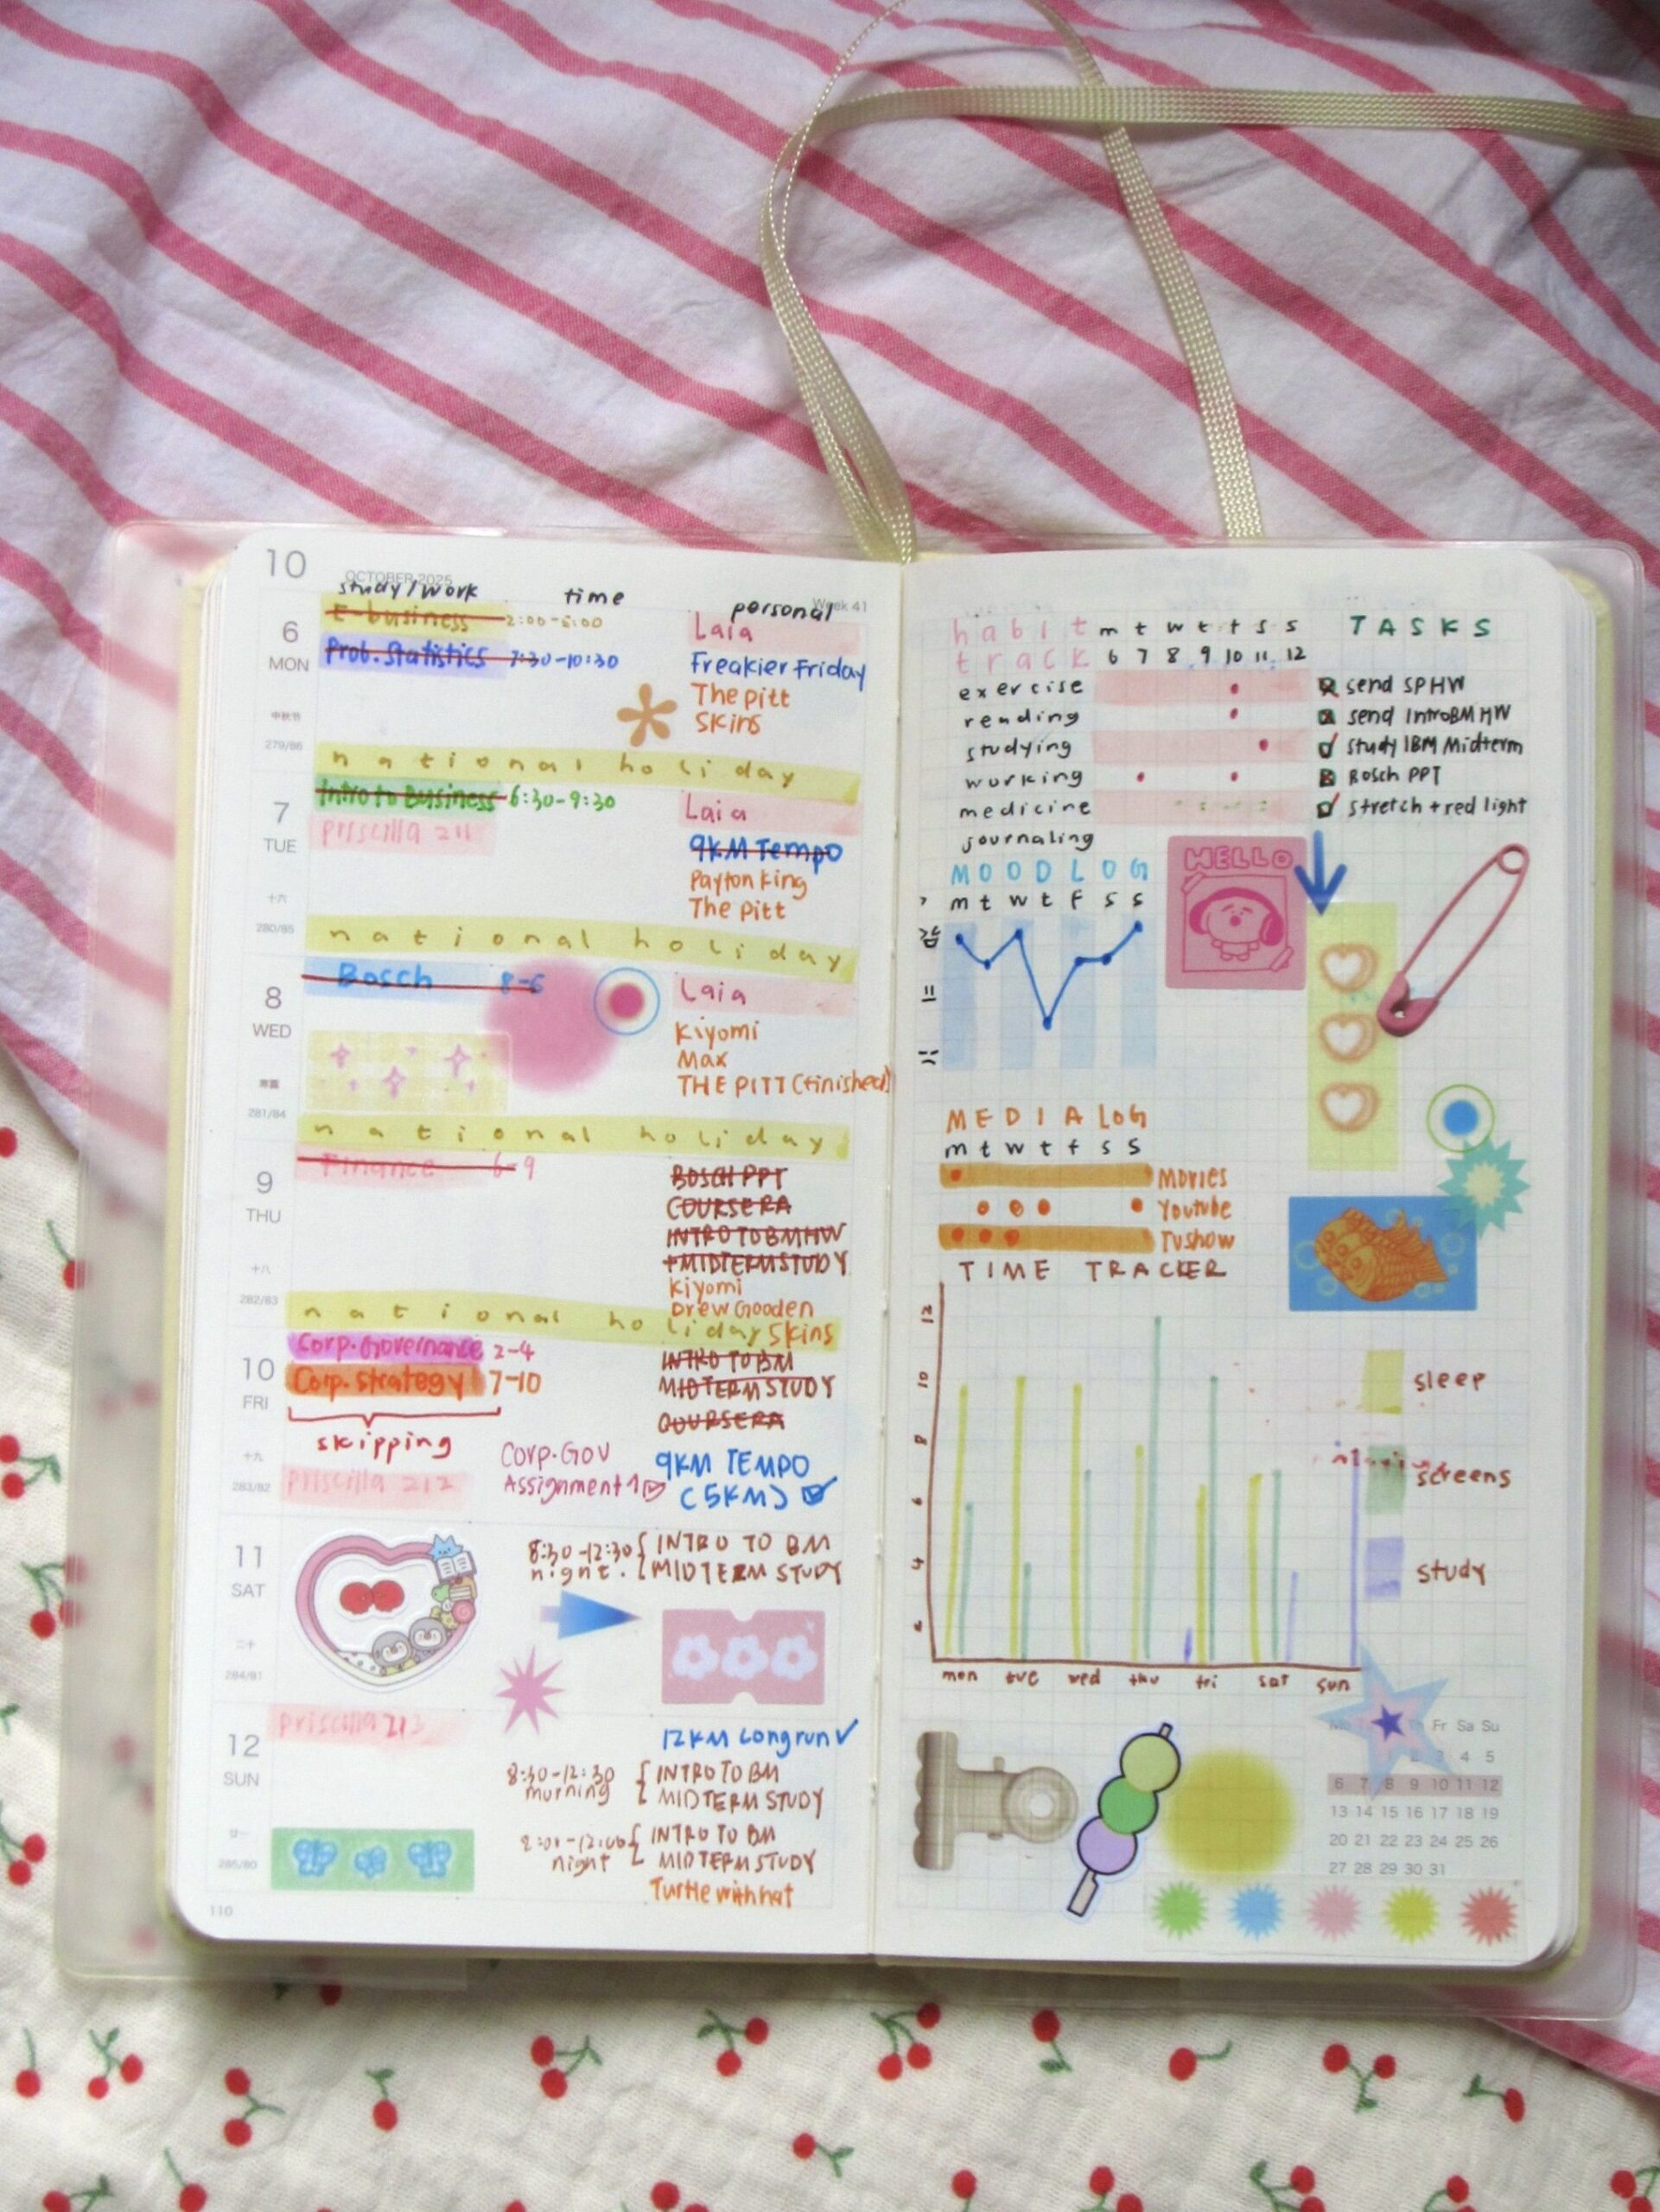 10
OCTOBER 2025
Week 41
study/work time personal
6
MON
中秋节
279/86
E-business
Prob. Statistics 7:30-10:30
Laia
Freakier Friday
The pitt
Skins
national holiday
7
TUE
十六
280/85
Intro to Business 6:30-9:30
Priscilla 211
Laia
9KM Tempo
Payton King
The pitt
national holiday
8
WED
281/84
Bosch 8-6
Laia
Kiyomi
Max
THE PITT (finished)
national holiday
9
THU
十八
282/83
Finance 6-9
BOSCH PPT
COURSERA
INTRO TO BM HW
+ MIDTERM STUDY
Kiyomi
Drew Gooden
Skins
national holiday
10
FRI
十九
283/82
Corp. Governance 2-4
Corp. Strategy 7-10
skipping
Priscilla 212
Corp. Gov
Assignment 1
INTRO TO BM
MIDTERM STUDY
COURSERA
9KM TEMPO
(5KM)
11
SAT
二十
284/81
8:30-12:30
night.
INTRO TO BM
MIDTERM STUDY
12
SUN
廿一
285/80
Priscilla 213
12KM Longrun
8:30-12:30
morning
INTRO TO BM
MIDTERM STUDY
night
INTRO TO BM
MIDTERM STUDY
Turtle with hat
110
habit
track
m t w t f s s
6 7 8 9 10 11 12
exercise
reading
studying
working
medicine
journaling
TASKS
send SPHW
send IntroBM HW
study IBM Midterm
Bosch PPT
stretch + red light
MOOD LOG
m t w t f s s
HELLO
MEDIA LOG
m t w t f s s
Movies
Youtube
TVshow
TIME TRACKER
12
10
8
6
4
2
mon tue wed thu fri sat sun
sleep
screens
study
Fr Sa Su
4 5
6 7 8 9 10 11 12
13 14 15 16 17 18 19
20 21 22 23 24 25 26
27 28 29 30 31